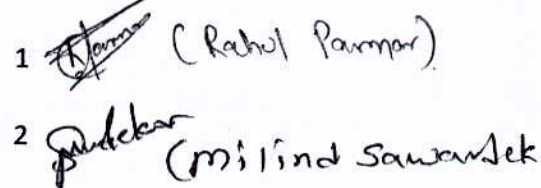 1 (Rahul Parmar)
2 (Milind Sawardek